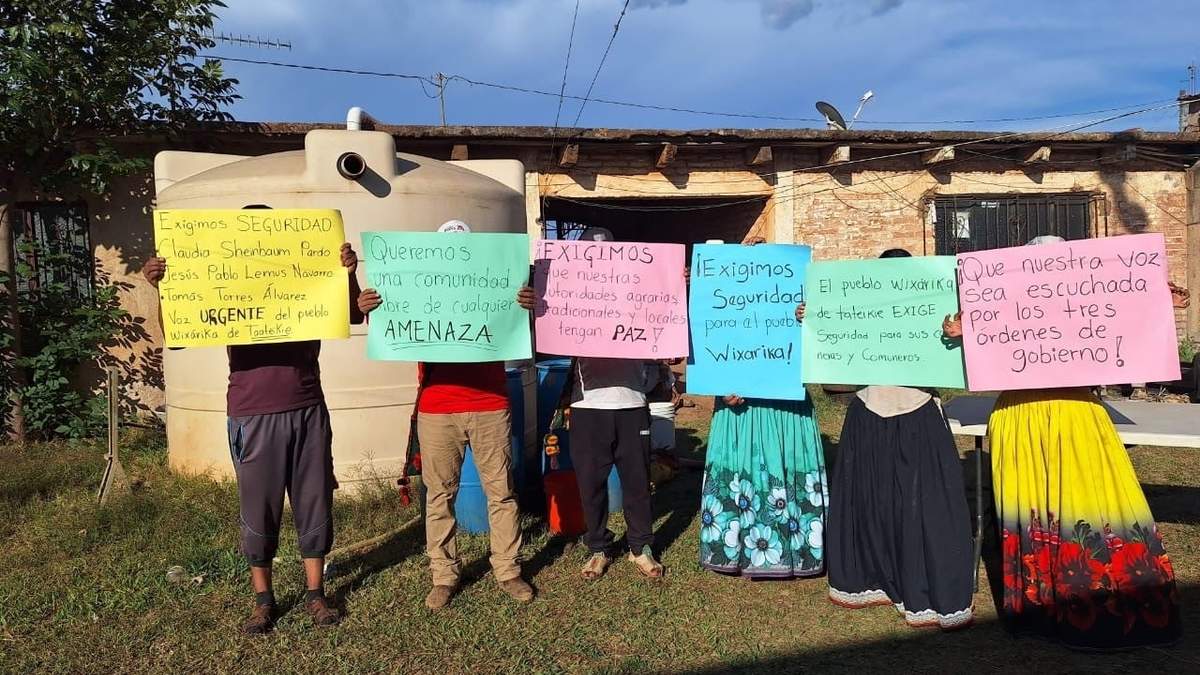 Exigimos SEGURIDAD
Claudia Sheinbaum Pardo
Jesús Pablo Lemus Navarro
• Tomás Torres Álvarez
Voz URGENTE del pueblo
Wixárika de Taatekie
Queremos
una comunidad
libre de cualquier
AMENAZA
¡EXIGIMOS
que nuestras
autoridades agrarias
tradicionales y locales
tengan PAZ!
¡Exigimos
Seguridad
para el pueblo
Wixarika!
El pueblo Wixárika
de tateikie EXIGE
Seguridad para sus
y Comuneros
¡Que nuestra voz
sea escuchada
por los tres
órdenes de
gobierno!